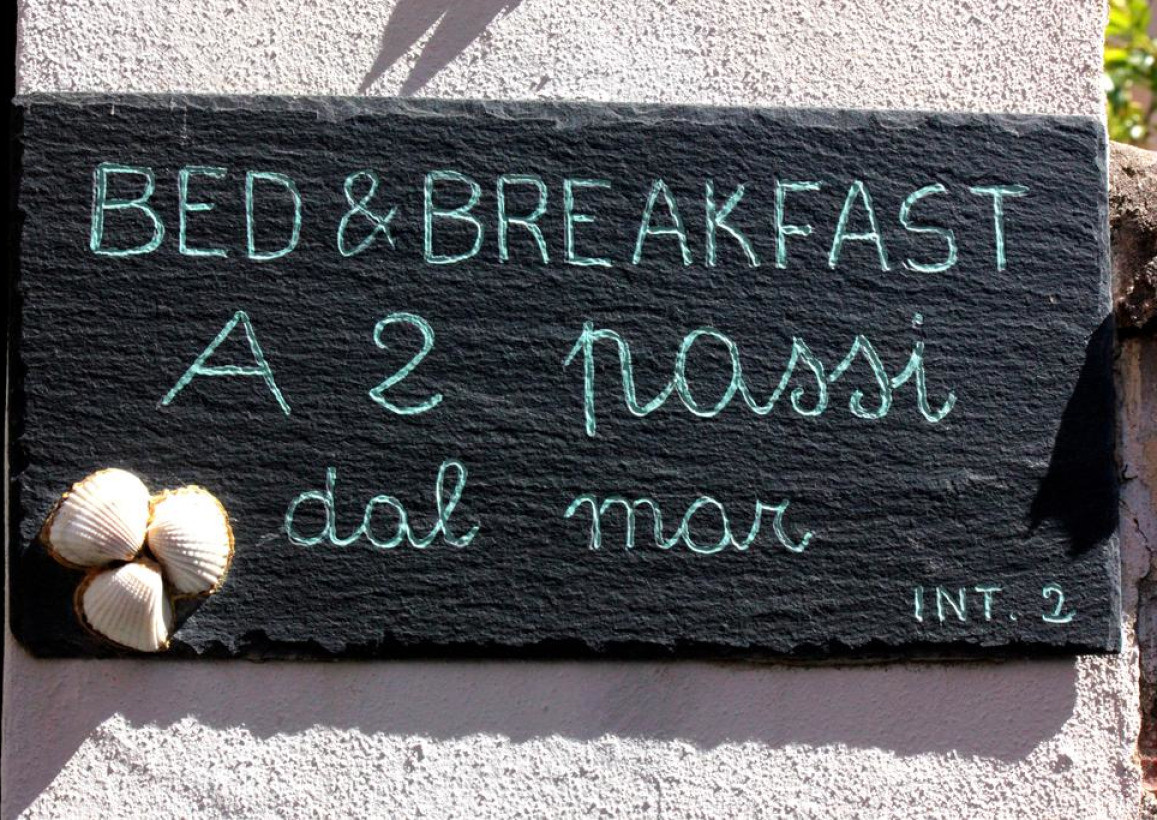 BED & BREAKFAST
A 2 passi
dal mar
INT. 2